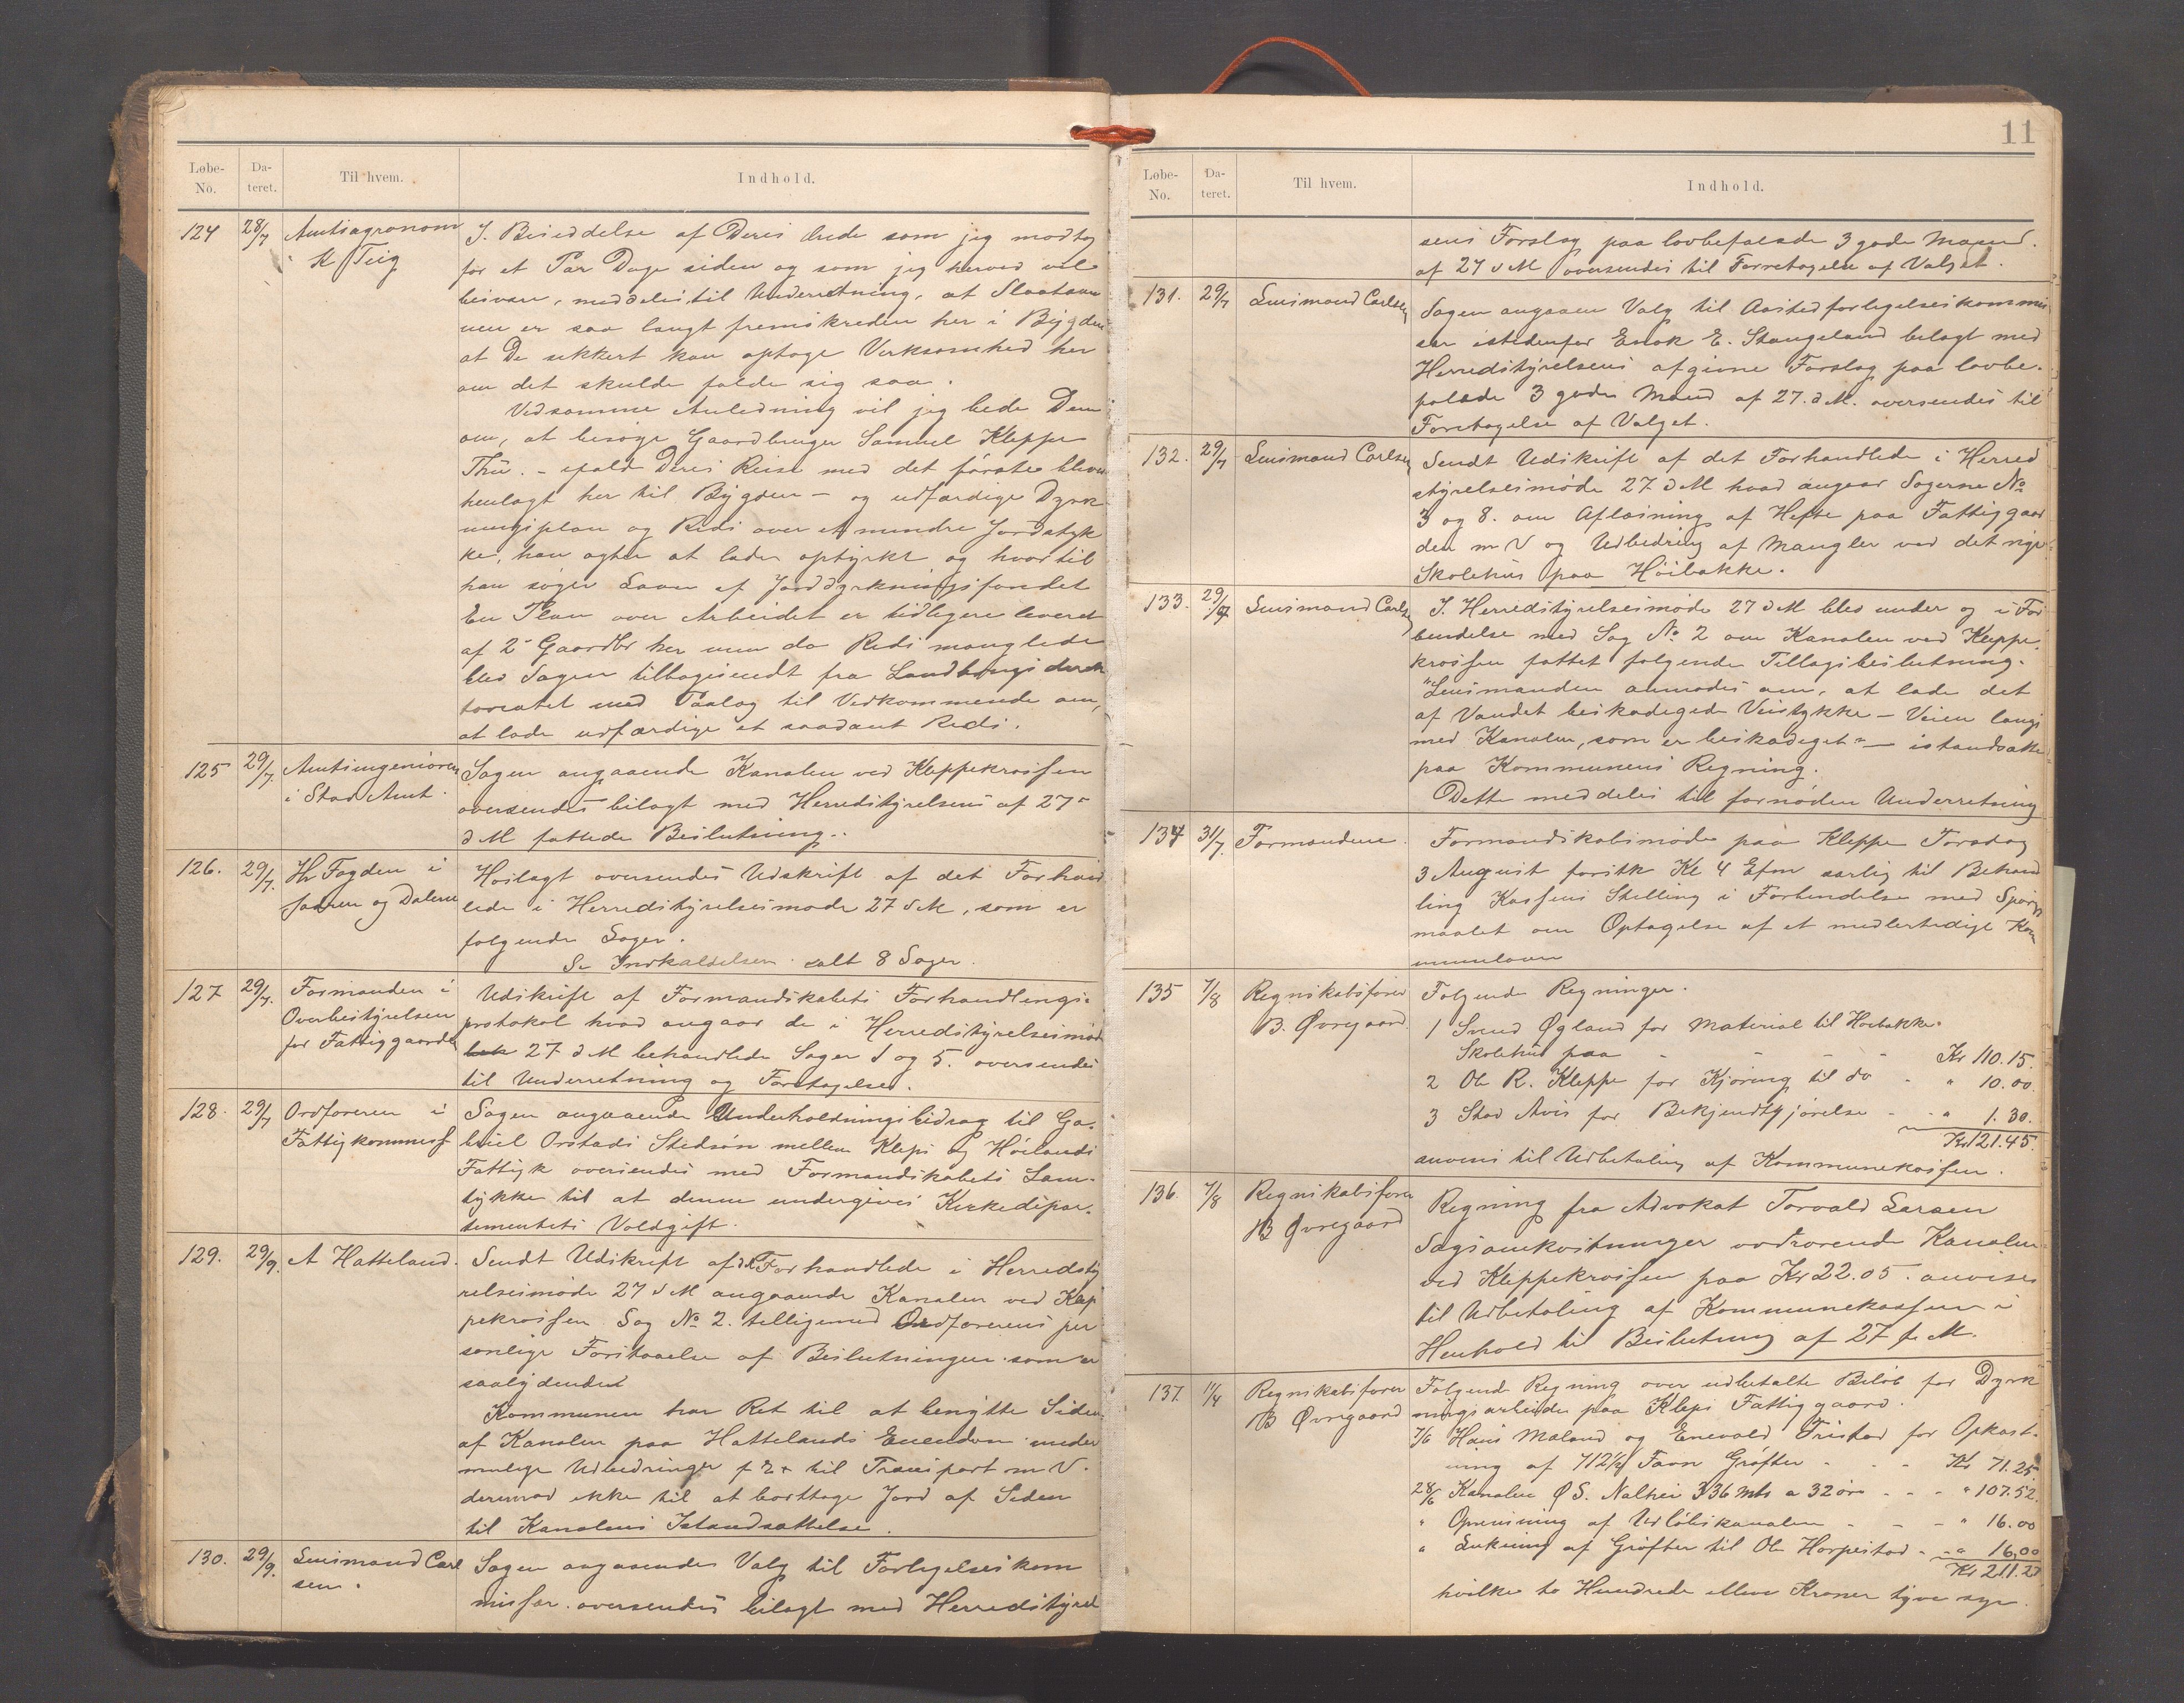 Løbe-No. Da-teret. Til hvem. Indhold.
124 28/7 Amtsagronom K Teig
I. Besiddelse af Deres Brede som jeg modtog
for et Par Dage siden og som jeg herved vil
besvare, meddeles til Underretning, at Slaataan
nen er saa langt fremskreden her i Bygden
at De sikkert kan optage Virksomhed her
om det skulde falde sig saa.
Ved samme Anledning vil jeg bede Dem
om, at besøge Gaardbruger Samuel Kleppe
Thu. - ifald Deres Reise med det første bliver
henlagt her til Bygden - og udfærdige Dyrk
ningsplan og Redi over et mindre Jordstyk
ke, han agter at lade opdyrke og hvortil
han søger Laan af Jorddyrkningsfondet
En Plan over Arbeidet er tidligere leveret
af 2 Gaardbr her men da Redi manglede
blev Sagen tilbagesendt fra Landbrugsdirek
toratet med Paalag til Vedkommende om,
at lade udfærdige et saadant Redi.
125 29/7. Amtsingeniøren i Stav Amt.
Sagen angaaende Kanalen ved Kleppekrossen
oversendes bilagt med Herredstyrelsens af 27
d M fattede Beslutning.
126. 29/7. Hr Fogden i Jæren og Dalene
Hoslagt oversendes Udskrift af det Forhand
lede i Herredstyrelsesmøde 27 d M, som er
følgende Sager.
Se Indkaldelsen. ialt 8 Sager.
127 29/7. Formanden i Overbestyrelsen for Fattiggaarden
Udskrift af Formandskabets Forhandlings-
protokol hvad angaar de i Herredstyrelsesmøde
27 d M behandlede Sager 1 og 5. oversendes
til Underretning og Foretagelse.
128. 29/7 Ordføreren i Fattigkommiss
Sagen angaaende Underholdningsbidrag til Ga-
briel Orstads Stedsøn mellem Kleps og Høilands
Fattigk oversendes med Formandskabets Sam-
tykke til at denne undergives Kirkedepar-
tementets Voldgift.
129. 29/9. A Hatteland.
Sendt Udskrift af det Forhandlede i Herredsty
relsesmøde 27 d M angaaende Kanalen ved Klep
pekrossen Sag No 2. tilligemed Ordførerens per
sonlige Forstaaelse af Beslutningen som er
saalydende
Kommunen har Ret til at benytte Siden
af Kanalen paa Hattelands Eiendom under
mulige Udbedringer f Ex til Transport m V.
derimod ikke til at borttage Jord af Siden
til Kanalens Istandsættelse.
130. 29/9. Lensmand Carl sen.
Sagen angaaende Valg til Forligelseskom
missær. oversendes bilagt med Herredstyrel
11
Løbe-No. Da-teret. Til hvem. Indhold.
sens Forslag paa lovbefalede 3 gode Mænd.
af 27 d M oversendes til Foretagelse af Valget.
131. 29/7 Lensmand Carlsen
Sagen angaaen Valg til Aastedforligelseskommis
sær istedenfor Enok E. Stangeland bilagt med
Herredstyrelsens afgivne Forslag paa lovbe-
falede 3 gode Mænd af 27. d M. oversendes til
Foretagelse af Valget.
132. 29/7 Lensmand Carlsen
Sendt Udskrift af det Forhandlede i Herred
styrelsesmøde 27 d M hvad angaar Sagerne No
3 og 8. om Aflæsning af Hefte paa Fattiggaar
den m V og Udbedring af Mangler ved det nye
Skolehus paa Høibakke.
133. 29/7 Lensmand Carlsen
I. Herredstyrelsesmøde 27 d M blev under og i For
bendelse med Sag No 2 om Kanalen ved Kleppe-
krossen fattet følgende Tillægsbeslutning.
"Lensmanden anmodes om, at lade det
af Vandet beskadigede Veistykke - Veien langs
med Kanalen, som er beskadiget" - istandsætte
paa Kommunens Regning.
Dette meddeles til fornøden Underretning
134 31/7. Formændene.
Formandskabsmøde paa Kleppe Torsdag
3 August førstk Kl 4 Efm særlig til Behand
ling Kassens Stilling i Forbindelse med Spørgs
maalet om Optagelse af et midlertidigt Kom
munelaan
135 7/8 Regnskabsfører B. Øvregaard
Følgende Regninger.
1 Svend Øgland for Material til Høibakke
Skolehus paa - - - - Kr 110.15.
2 Ole R. Kleppe for Kjøring til do - " 10.00
3 Stav Avis for Bekjendtgjørelse - - " 1.30.
Kr 121.45.
anvises til Udbetaling af Kommunekassen.
136. 7/8 Regnskabsfører B Øvregaard
Regning fra Advokat Torvald Larsen
Sagsomkostninger vedrørende Kanalen
ved Kleppekrossen paa Kr 22.05. anvises
til Udbetaling af Kommunekassen i
Henhold til Beslutning af 27 f. M.
137. Regnskabsfører B Øvregaard
Følgende Regning over udbetalte Beløb for Dyrk
ningsarbeide paa Kleps Fattiggaard.
7/6 Hans Maland og Enevald Tristad for Opkast-
ning af 712½ Favn Grøfter - - - Kr 71.25
28/6 Kanalen Ø S. Nalhei 336 mtr a 32 øre - - - " 107.52.
" Oprensning af Udløbskanalen - - - " 16.00
" Lukning af Grøfter til Ole Horpestad - - " 16.00
Kr 211.27
hvilke to Hundrede elleve Kroner tyve syv.